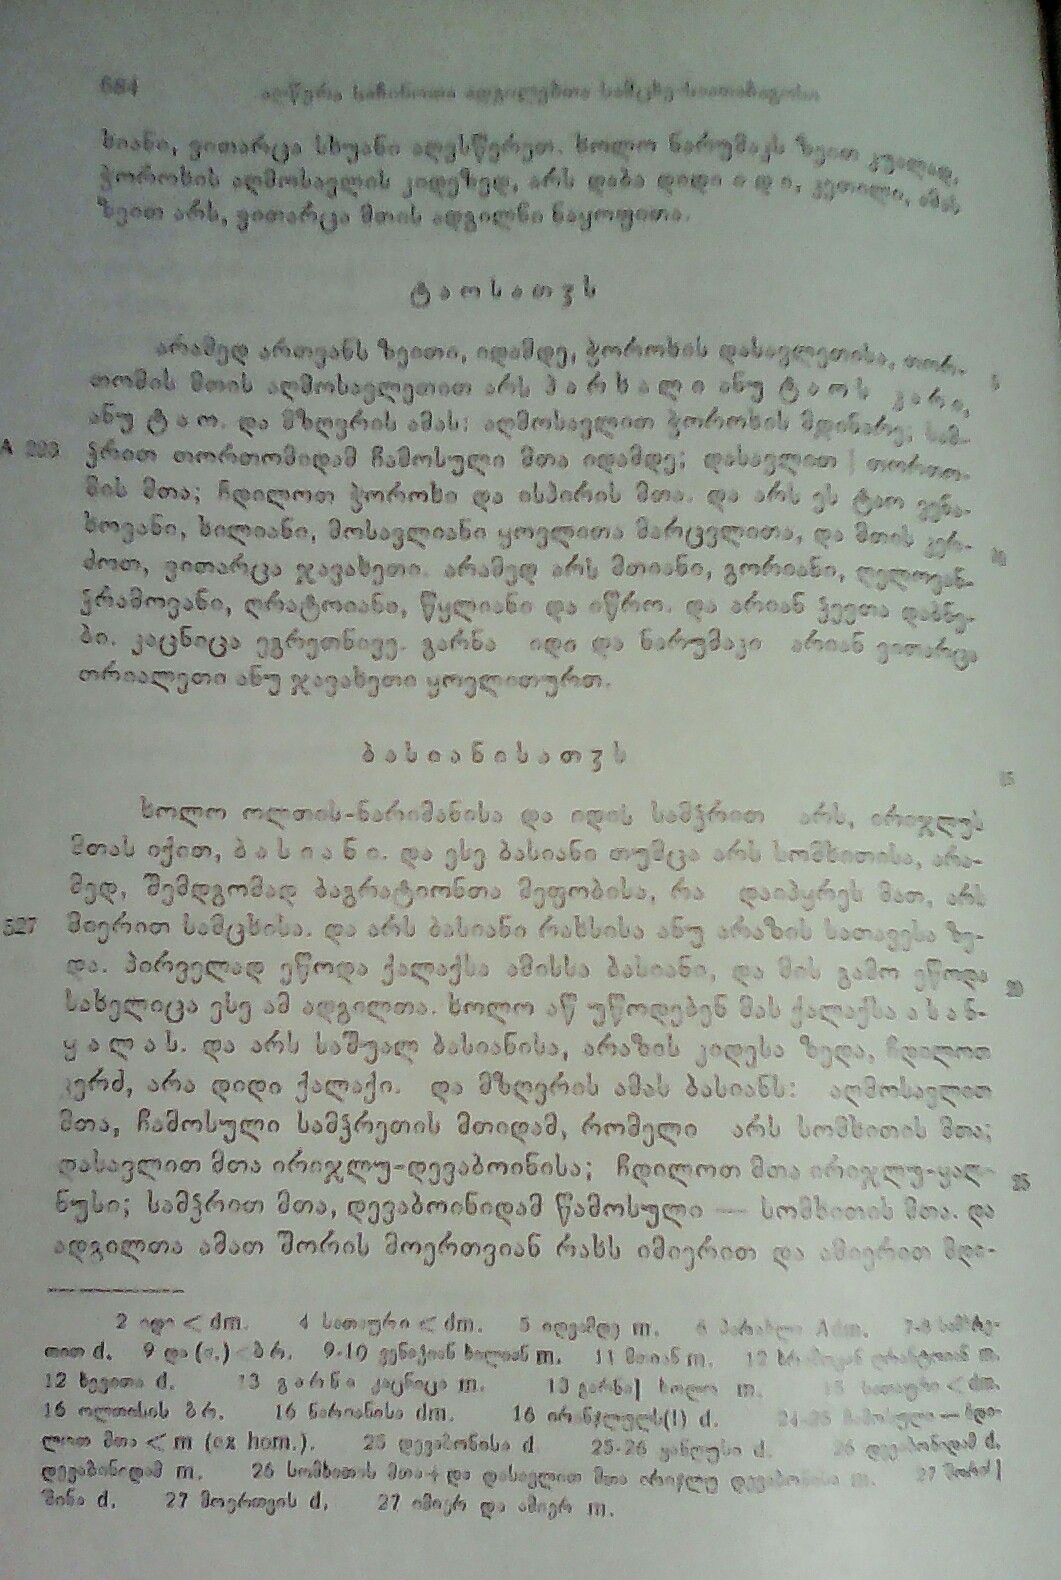 684 აღწერა საჩინოთა ადგილებთა სამცხე-საათაბაგოსი
ხიანი, ვითარცა სხუანი აღვსწერეთ. ხოლო ნარუმაკს ზეით კუალად,
ჭოროხის აღმოსავლის კიდეზედ, არს დაბა დიდი ი დ ი, კეთილი, ამას
ზეით არს, ვითარცა მთის ადგილნი ნაყოფითა.
ტ ა ო ს ა თ ჳ ს
არამედ ართვანს ზეითი, იდამდე, ჭოროხის დასავლეთისა, თორ-
თომის მთის აღმოსავლეთით არს პ ა რ ხ ა ლ ი ანუ ტ ა ო ს კ ა რ ი, 5
ანუ ტ ა ო. და მზღვრის ამას: აღმოსავლით ჭოროხის მდინარე; სამ-
ჭრით თორთომიდამ ჩამოსული მთა იდამდე; დასავლით | თორთო-
მის მთა; ჩდილოთ ჭოროხი და ისპირის მთა. და არს ეს ტაო ვენა-
ხოვანი, ხილიანი, მოსავლიანი ყოვლითა მარცვლითა, და მთის კერ- 10
ძოთ, ვითარცა ჯავახეთი. არამედ არს მთიანი, გორიანი, ღელოვან-
ჭრამოვანი, ღრატოიანი, წყლიანი და იწრო. და არიან ჴევთა დაბნე-
ბი. კაცნიცა ეგრეთნივე. გარნა იდი და ნარუმაკი არიან ვითარცა
თრიალეთი ანუ ჯავახეთი ყოვლითურთ.
ბ ა ს ი ა ნ ი ს ა თ ჳ ს
15
ხოლო ოლთის-ნარიმანისა და იდის სამჭრით არს, ირიჯლუს
მთას იქით, ბ ა ს ი ა ნ ი. და ესე ბასიანი თუმცა არს სომხითისა, არა-
მედ, შემდგომად ბაგრატიონთა მეფობისა, რა დაიპყრეს მათ, არს
527 მიერით სამცხისა. და არს ბასიანი რახსისა ანუ არაზის სათავესა ზე-
და. პირველად ეწოდა ქალაქსა ამისსა ბასიანი, და მის გამო ეწოდა
სახელიცა ესე ამ ადგილთა. ხოლო აწ უწოდებენ მას ქალაქსა ა ს ა ნ- 20
ყ ა ლ ა ს. და არს საშუალ ბასიანისა, არაზის კიდესა ზედა, ჩდილოთ
კერძ, არა დიდი ქალაქი. და მზღვრის ამას ბასიანს: აღმოსავლით
მთა, ჩამოსული სამჭრეთის მთიდამ, რომელი არს სომხითის მთა;
დასავლით მთა ირიჯლუ-დევაბოინისა; ჩდილოთ მთა ირიჯლუ-ყალ-
ნუსი; სამჭრით მთა, დევაბოინიდამ წამოსული — სომხითის მთა. და 25
ადგილთა ამათ შორის მოერთვიან რახს იმიერით და ამიერით მდი-
2 იდი < dm. 4 სათაური < dm. 5 იდვამდე m. 7-8 სამხრე-
თით d. 9 და (ა.) < ბ რ. 9-10 ვენიჭიან ხილიან m. 11 მთიან m.
12 ხევითა d. 13 გ ა რ ნ ა კაცნიცა m. 13 გარნა] ხოლო m. 15 სათაური < dm.
16 ოლთისის ბ რ. 16 ნარიანისა dm. 16 d. 24-25 ჩამოსული — ჩდი-
ლოთ მთა < m (ex hom.). 25 დევაბონისა d. 25-26 ყანლუსი d. 26 დევაბონიდამ d,
დევაბინიდამ m. 26 სომხითის მთა + და დასავლით მთა ირიჯლუ დევაბონისა m. 27 შორის]
შინა d. 27 მოერთვის d. 27 იმიერ და ამიერ m.